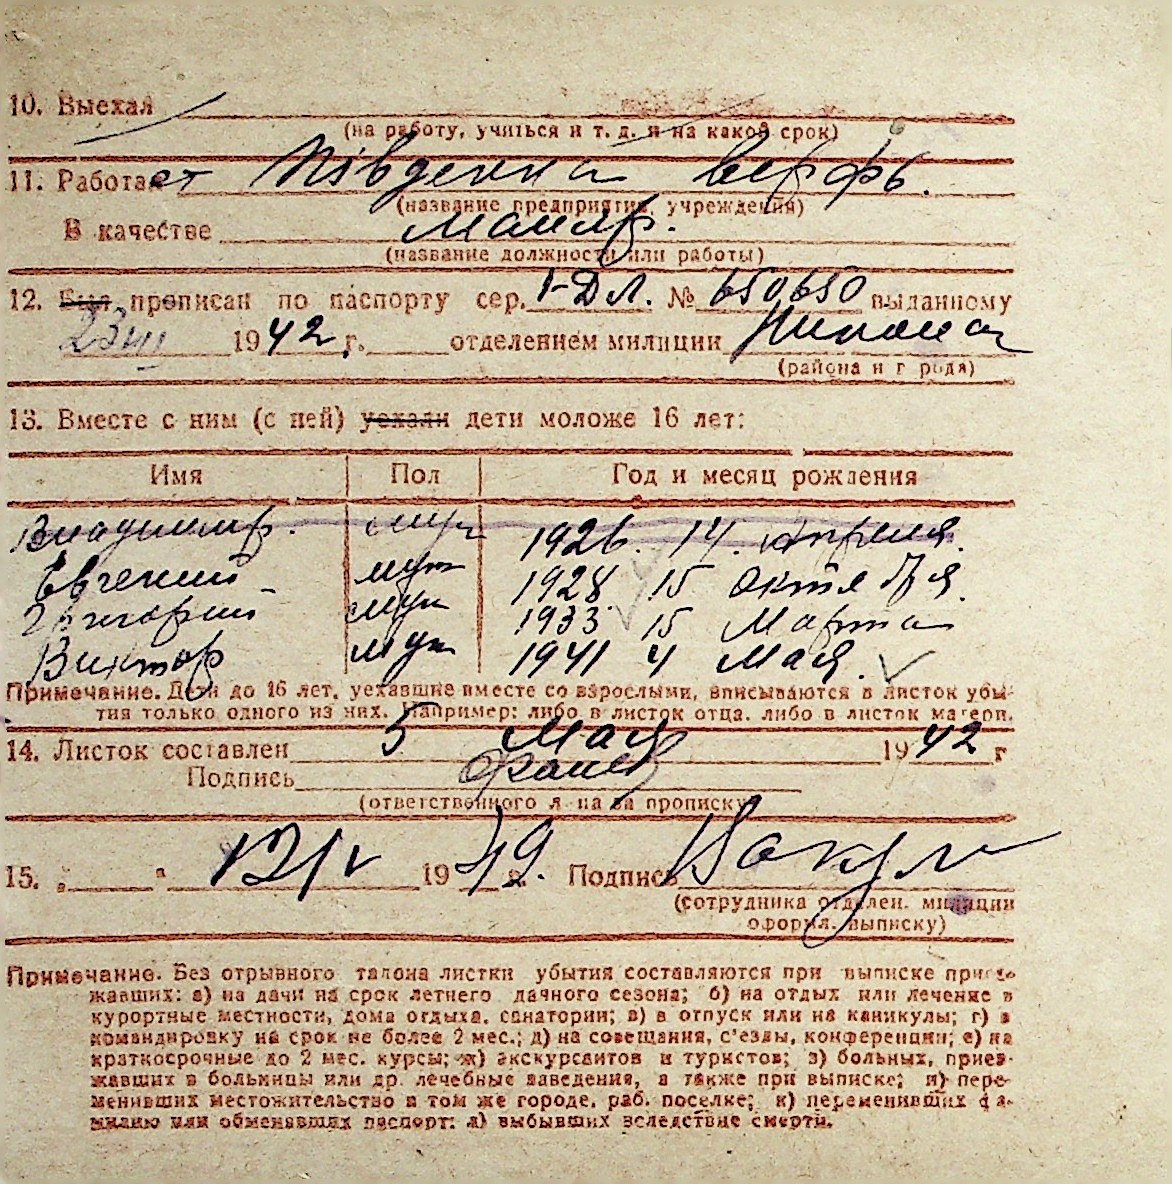 10. Выехал
(на работу, учиться и т. д. и на какой срок)
11. Работает Південна верфь.
(название предприятия, учреждения)
В качестве маляр.
(название должности или работы)
12. Был прописан по паспорту сер. 1-ДЛ. № 650650 выданному
23/III 1942 г. отделением милиции
(района и города)
13. Вместе с ним (с ней) уехали дети моложе 16 лет:
Имя Пол Год и месяц рождения
Владимир. муж 1926. 14. Апреля.
Евгений муж 1928 15 октября.
Григорий муж 1933 15 Марта
Виктор муж 1941 4 Мая.
Примечание. Дети до 16 лет, уехавшие вместе со взрослыми, вписываются в листок убы-
тия только одного из них. Например: либо в листок отца, либо в листок матери.
14. Листок составлен 5 Мая 1942 г
Подпись
(ответственного л-ца за прописку)
15. „ " 12/V 1942. Подпись
(сотрудника отделен. милиции
оформ. выписку)
Примечание. Без отрывного талона листки убытия составляются при выписке приез-
жавших: а) на дачи на срок летнего дачного сезона; б) на отдых или лечение в
курортные местности, дома отдыха, санатории; в) в отпуск или на каникулы; г) в
командировку на срок не более 2 мес.; д) на совещания, с'езды, конференции; е) на
краткосрочные до 2 мес. курсы; ж) экскурсантов и туристов; з) больных, приез-
жавших в больницы или др. лечебные заведения, а также при выписке; и) пере-
менивших местожительство в том же городе, раб. поселке; к) переменивших фа-
милию или обменявших паспорт; л) выбывших вследствие смерти.